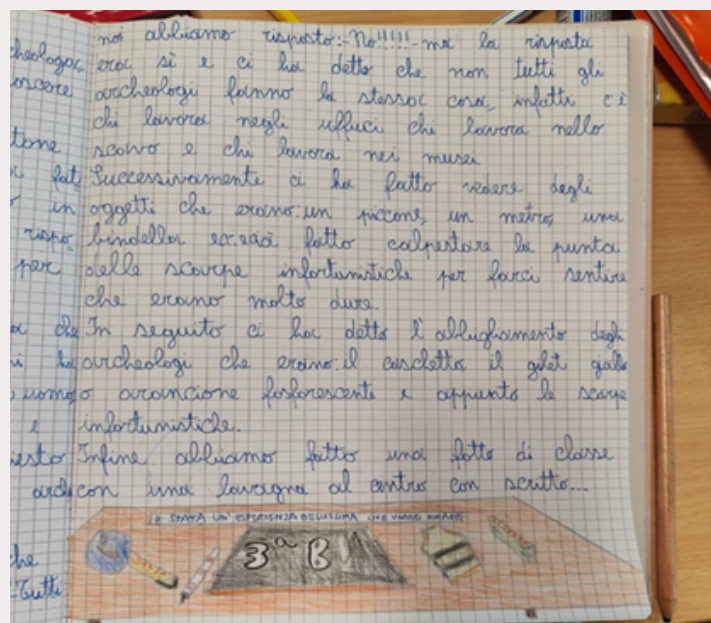 noi abbiamo risposto:-No!!!!!-ma la risposta
cheologa, era sì e ci ha detto che non tutti gli
oscere archeologi fanno la stessa cosa, infatti c'è
chi lavora negli uffuci chi lavora nello
tone scavo e chi lavora nei musei.
fat Successivamente ci ha fatto vedere degli
in oggetti che erano: un piccone, un metro, una
rispo bindella e fatto calpestare la punta
per delle scarpe infortunistiche per farci sentire
che erano molto dure.
che In seguito ci ha detto l'abbigliamento degli
ha archeologi che erano: il caschetto, il gilet giallo
uomo o arancione fosforescente e appunto le scarpe
e infortunistiche.
iesto Infine abbiamo fatto una fotto di classe
arch con una lavagna al centro con scritto...
È STATA UN'ESPERIENZA BELLISSIMA
he 3ª B
Tutti